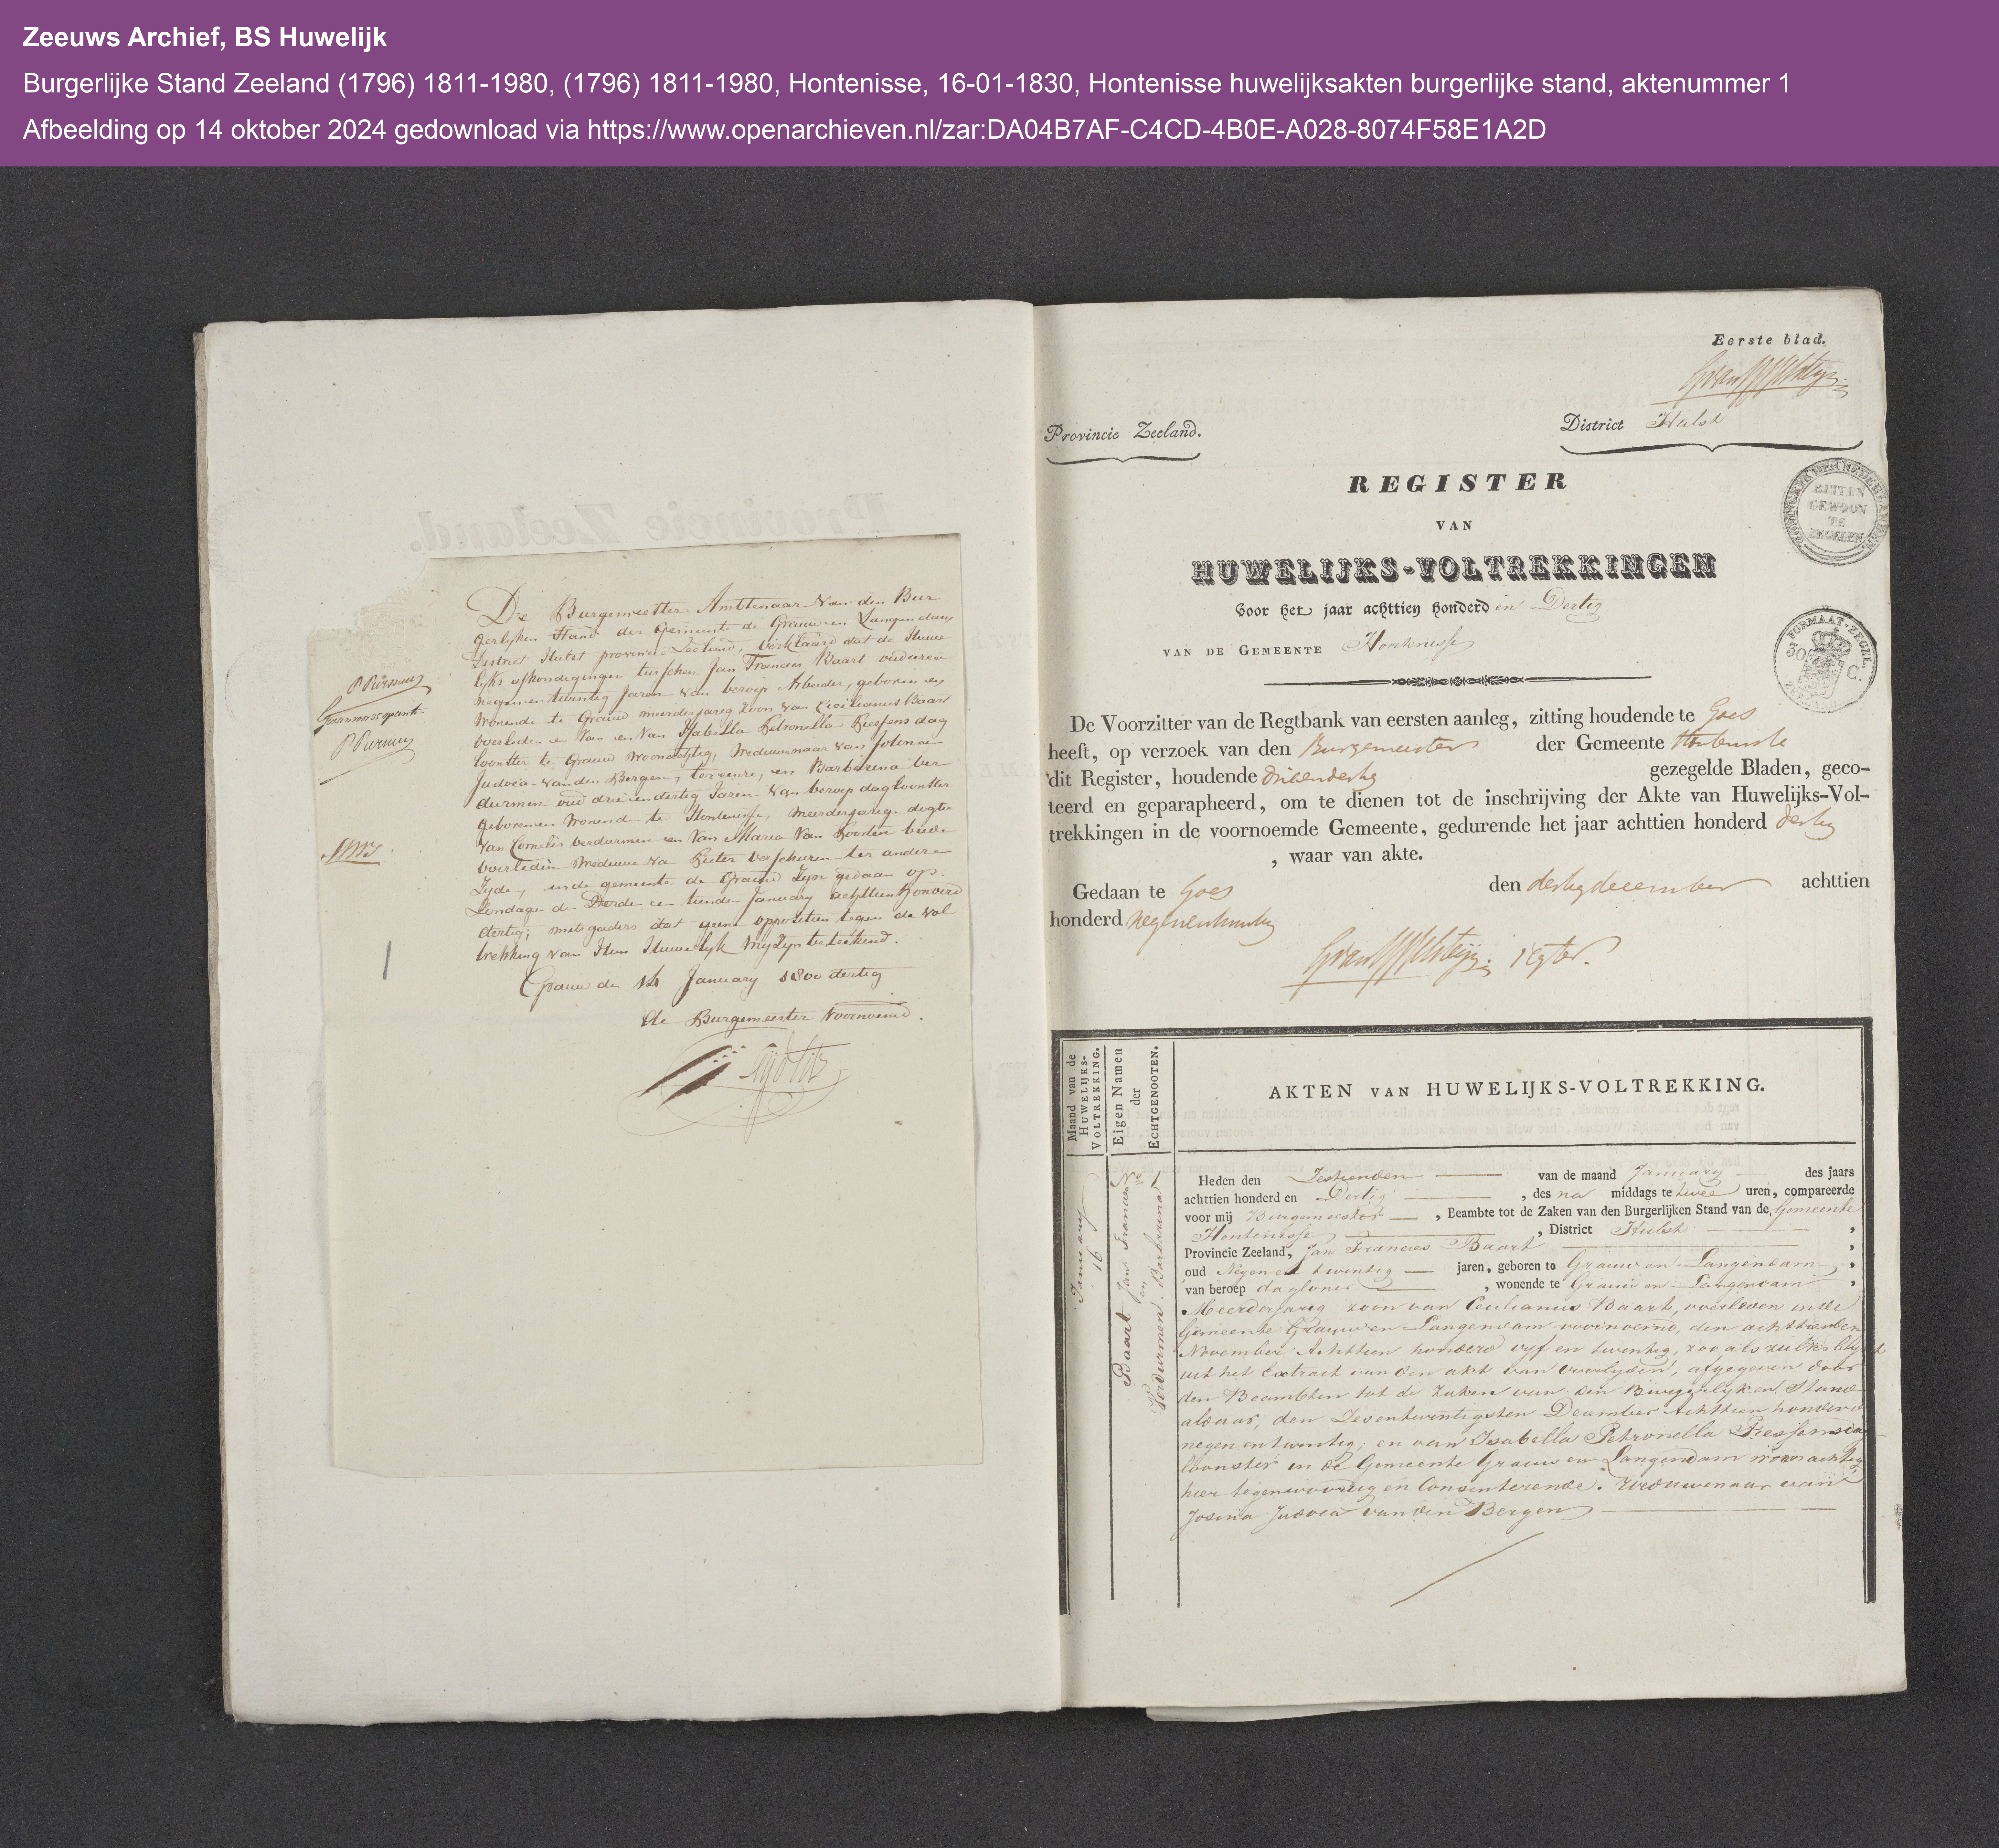 Zeeuws Archief, BS Huwelijk
Burgerlijke Stand Zeeland (1796) 1811-1980, (1796) 1811-1980, Hontenisse, 16-01-1830, Hontenisse huwelijksakten burgerlijke stand, aktenummer 1
Afbeelding op 14 oktober 2024 gedownload via https://www.openarchieven.nl/zar:DA04B7AF-C4CD-4B0E-A028-8074F58E1A2D
De Burgemeester Ambtenaar van den Bur
gerlyken Stand der Gemeente de Graauw en Langendam
District Hulst provincie Zeeland, verklaard dat de Huwe
lyks afkondegingen tusschen Jan Francies Baart oud
negen en twintig Jaren van beroep Arbeider, geboren en
wonende te Graauw meerderjareg zoon van Cecilianus Baart
overleden en van Isabella Petronella dag
loonster te Graauw woonachtig, Weduwenaar van Josina
Judoca van den Bergen, ter eenre, en Barbarena ver
durmen oud drie en dertig Jaren van beroep dagloonster
geboren en Wonend te Hontenisse, meerderjarige dogter
van Cornelis verdurmen en van Maria Van beide
overleden Weduwe va Pieter verschuren ter andere
Zyde, in de gemeente de Graauw Zyn gedaan op
Zondagen de Derde en tiende January achttien honderd
dertig; mitsgaders dat geene oppositien tegen de vol
trekking van Hun Huwelyk my Zyn beteekend.
Graauw den 14 January 1800 dertig
de Burgemeester Voornoemd.
1
Eerste blad.
Provincie Zeeland.
District Hulst
REGISTER
VAN
HUWELIJKS-VOLTREKKINGEN
Voor het jaar achttien honderd en Dertig
VAN DE GEMEENTE Hontenisse
BUITEN GEWOON TE ZEGELEN
FORMAAT-ZEGEL.
De Voorzitter van de Regtbank van eersten aanleg, zitting houdende te Goes
heeft, op verzoek van den Burgemeester der Gemeente Hontenisse
dit Register, houdende drieendertig gezegelde Bladen, geco-
teerd en geparapheerd, om te dienen tot de inschrijving der Akte van Huwelijks-Vol-
trekkingen in de voornoemde Gemeente, gedurende het jaar achttien honderd dertig
, waar van akte.
Gedaan te Goes den dertig december achttien
honderd negenentwintig
regter.
Maand van de HUWELIJKS-VOLTREKKING.
Eigen Namen der ECHTGENOOTEN.
AKTEN VAN HUWELIJKS-VOLTREKKING.
January 16
No 1
Baart Jan Francies
en
Verdurmen Barbarena
Heden den Zestienden van de maand January des jaars
achttien honderd en Dertig, des na middags te twee uren, compareerde
voor mij Burgemeester, Beambte tot de Zaken van den Burgerlijken Stand van de Gemeente
Hontenisse, District Hulst,
Provincie Zeeland, Jan Francies Baart,
oud Negen en twintig jaren, geboren te Graauw en Langendam,
van beroep dagloner, wonende te Graauw en Langendam,
Meerderjarig zoon van Cecilianus Baart, overleden in de
Gemeente Graauw en Langendam voornoemd, den achttienden
November Achttien honderd vyf en twentig, zoo als zulks blykt
uit het Extract van den akt van overlyden, afgegeven door
den Beambten tot de zaken van den Burgerlyken Stand
aldaar, den Zesentwintigsten December Achttien honderd
negen en twentig, en van Isabella Petronella
loonster in de Gemeente Graauw en Langendam woonachtig
hier tegenwoordig en Consenterende. Weduwenaar van
Josina Judoca van den Bergen